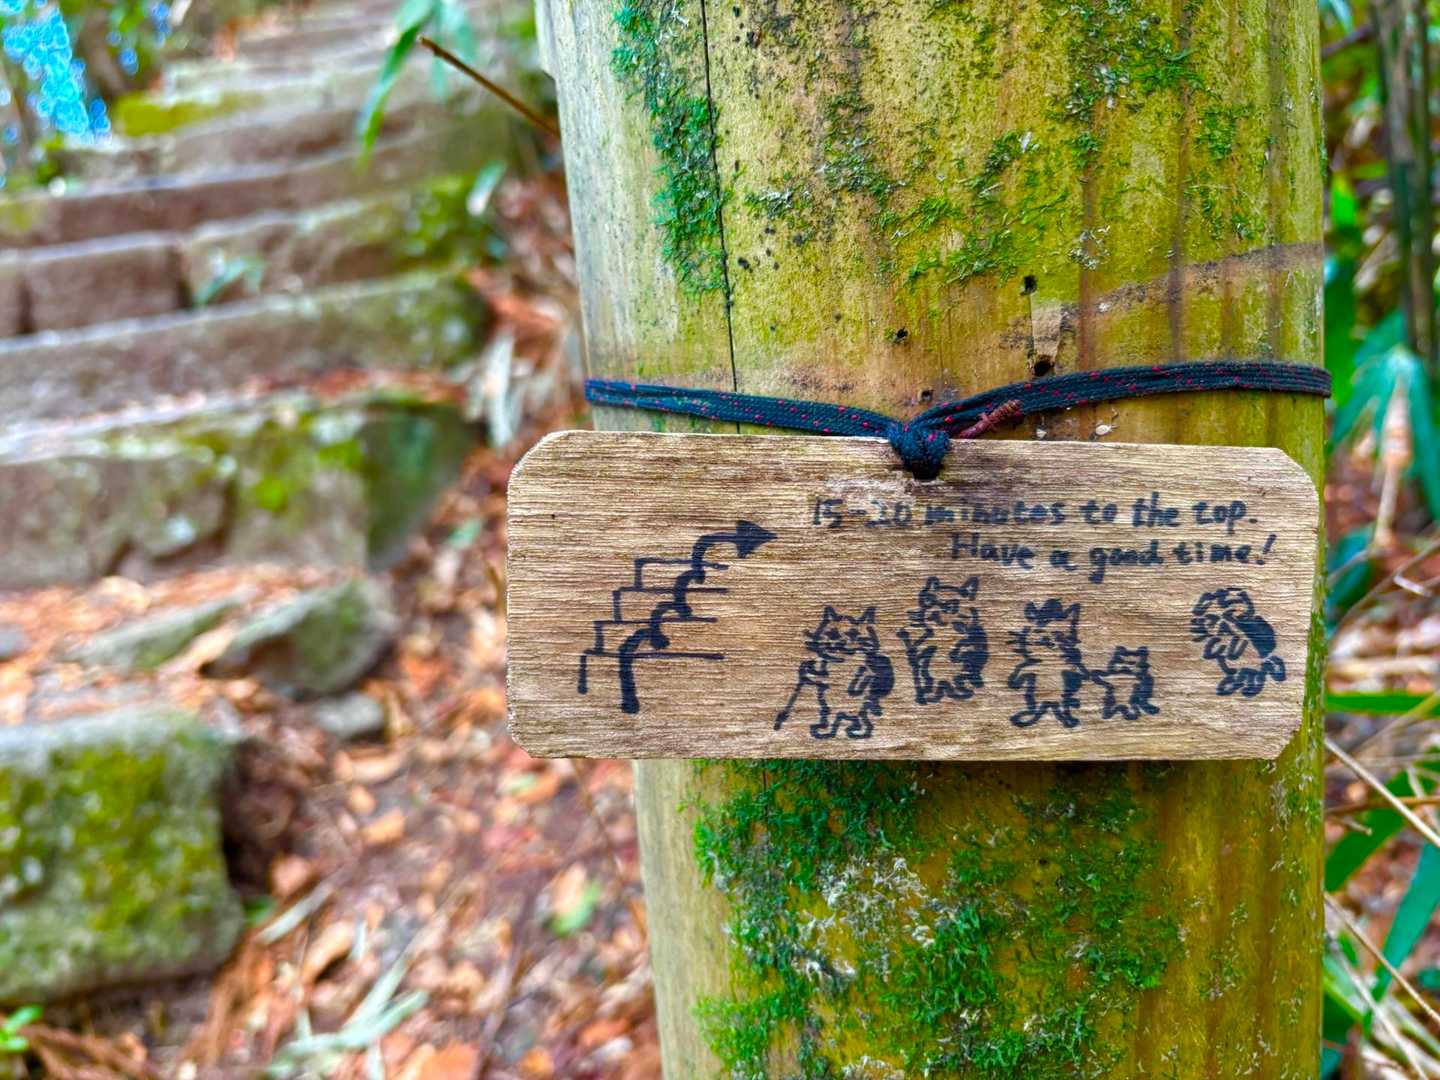 15-20 minutes to the top.
Have a good time!